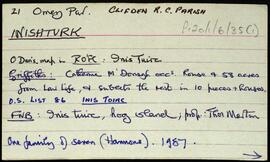 21 Omey Par. CLIFDEN R.C. PARISH
P120/1/6/35(1)
INISHTURK
O Don's. map in ROIC: Inis Tuirc
Griffiths: Catherine McDonagh occ. House & 58 acres
from Law Life, & sublets the rest in 10 pieces + houses.
O.S. LIST 86 INIS TOIRC
FNB: Inis Tuirc, hog island; prop. Thos Martin
One family of seven (Hammons). 1987.